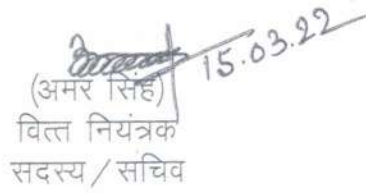 15.03.22
(अमर सिंह)
वित्त नियंत्रक
सदस्य / सचिव